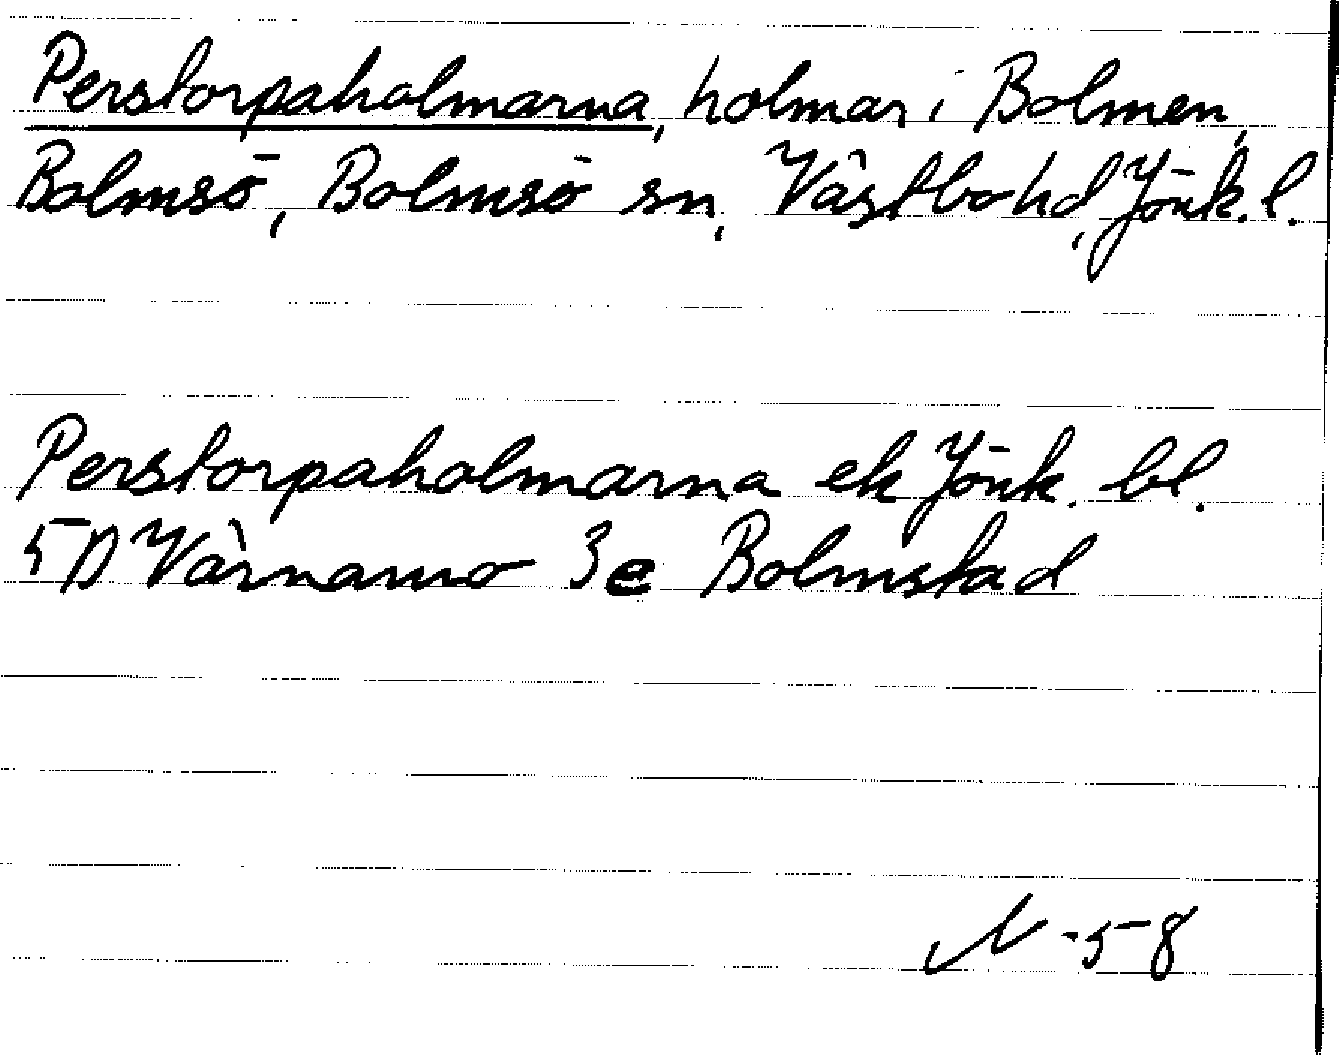 Perstorpaholmarna, holmar i Bolmen,
Bolmsö, Bolmsö sn, Västbo hd, Jönk. l.
Perstorpaholmarna ek Jönk. bl.
5D Värnamo 3e Bolmstad
N -58